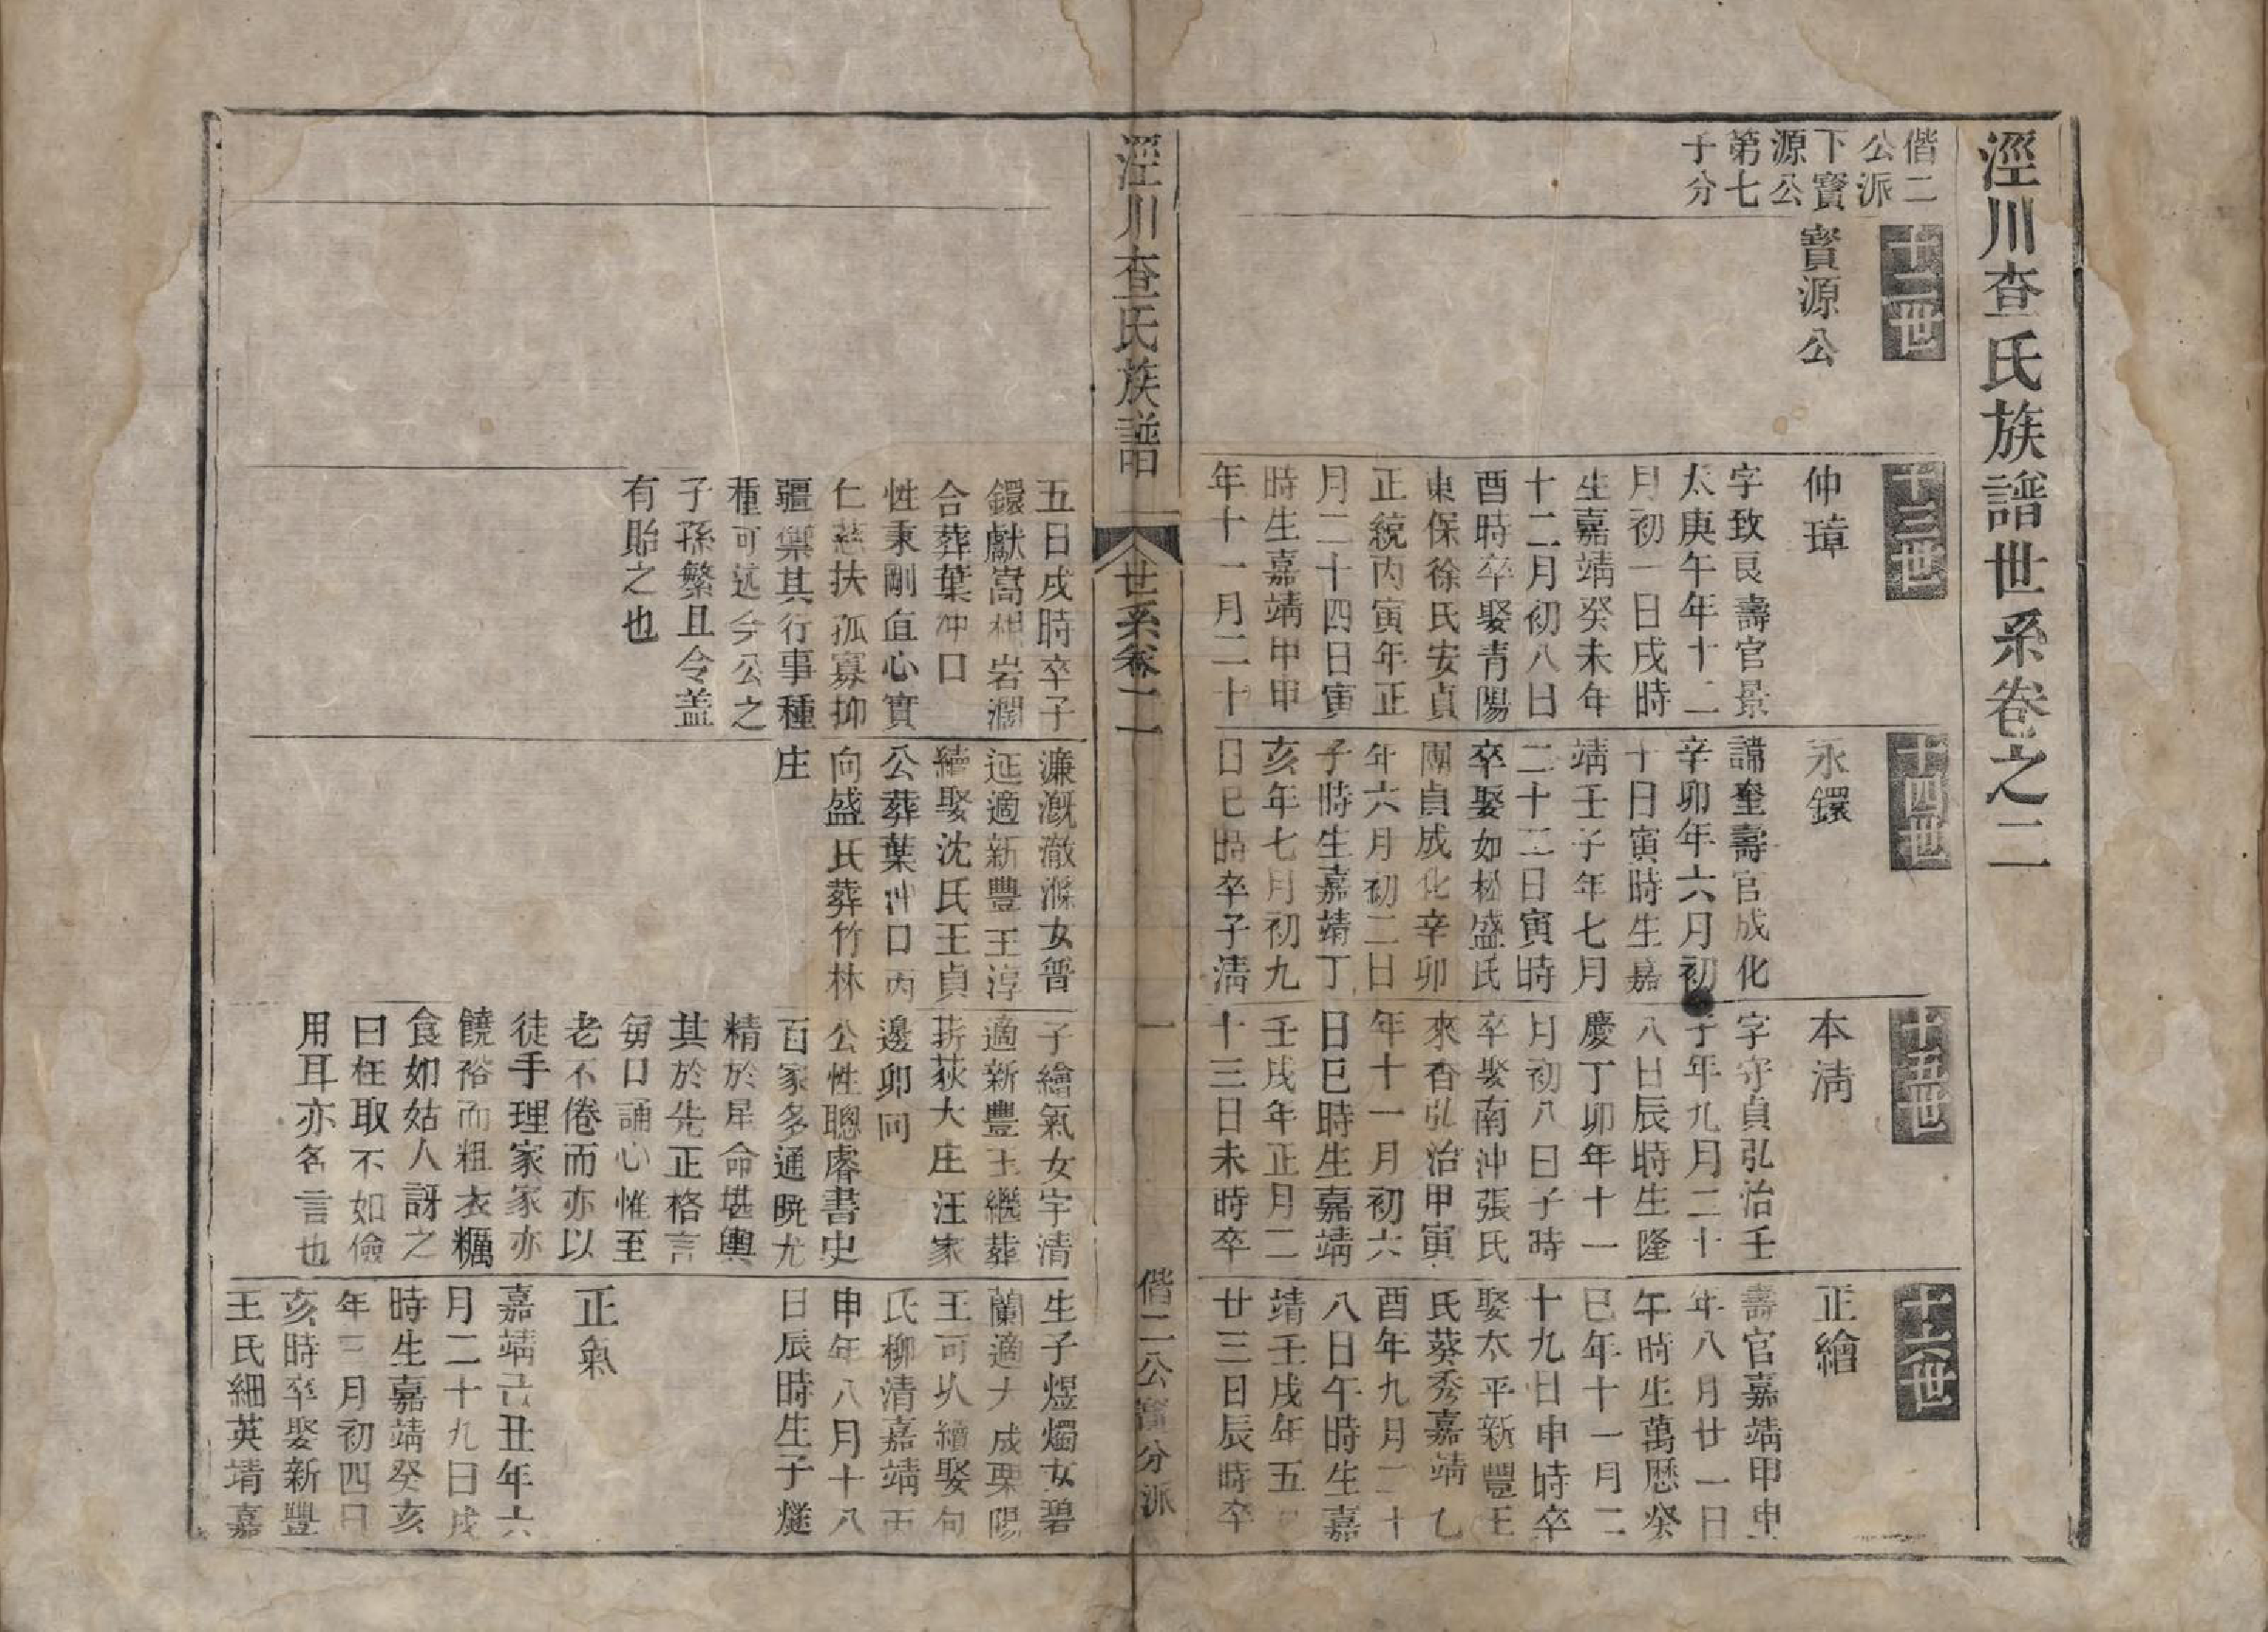 涇川查氏族譜世系卷之二
偕二
公派
下寳
源公
第七
子分
十二世
寳源公
十三世
仲璋
字致良壽官景
太庚午年十二
月初一日戌時
生嘉靖癸未年
十二月初八日
酉時卒娶青陽
東保徐氏安貞
正統丙寅年正
月二十四日寅
時生嘉靖甲申
年十一月二十
十四世
永鐶
諱奎壽官成化
辛卯年六月初
十日寅時生嘉
靖壬子年七月
二十三日寅時
卒娶如松盛氏
團貞成化辛卯
年六月初二日
子時生嘉靖丁
亥年七月初九
日巳時卒子淸
十五世
本淸
字守貞弘治壬
子年九月二十
八日辰時生隆
慶丁卯年十一
月初八日子時
卒娶南沖張氏
來香弘治甲寅
年十一月初六
日巳時生嘉靖
壬戌年正月二
十三日未時卒
十六世
正繪
壽官嘉靖甲申
年八月廿一日
午時生萬歷癸
巳年十一月二
十九日申時卒
娶太平新豐王
氏葵秀嘉靖乙
酉年九月二十
八日午時生嘉
靖壬戌年五
廿三日辰時卒
涇川查氏族譜
世系卷二
一
偕二公寳分派
五日戌時卒子
鐶獻嵩相岩澗
合葬葉冲口
性秉剛直心實
仁慈扶孤寡抑
疆禦其行事種
種可述今公之
子孫繁且令葢
有貽之也
濂溉澈滌女晋
延適新豐王淳
續娶沈氏王貞
公葬葉冲口丙
向盛氏葬竹林
庄
子繪氣女宇清
適新豐王繼葬
荻大庄汪家
邊卯同
公性聰睿書史
百家多通曉尤
精於星命堪輿
其於先正格言
每口誦心惟至
老不倦而亦以
徒手理家家亦
饒裕而粗衣糲
食如姑人訝之
曰枉取不如儉
用耳亦名言也
生子煜燭女碧
蘭適大成栗陽
王可㕥續娶句
氏柳清嘉靖丙
申年八月十八
日辰時生子燧
正氣
嘉靖己丑年六
月二十九日戌
時生嘉靖癸亥
年三月初四日
亥時卒娶新豐
王氏細英靖嘉